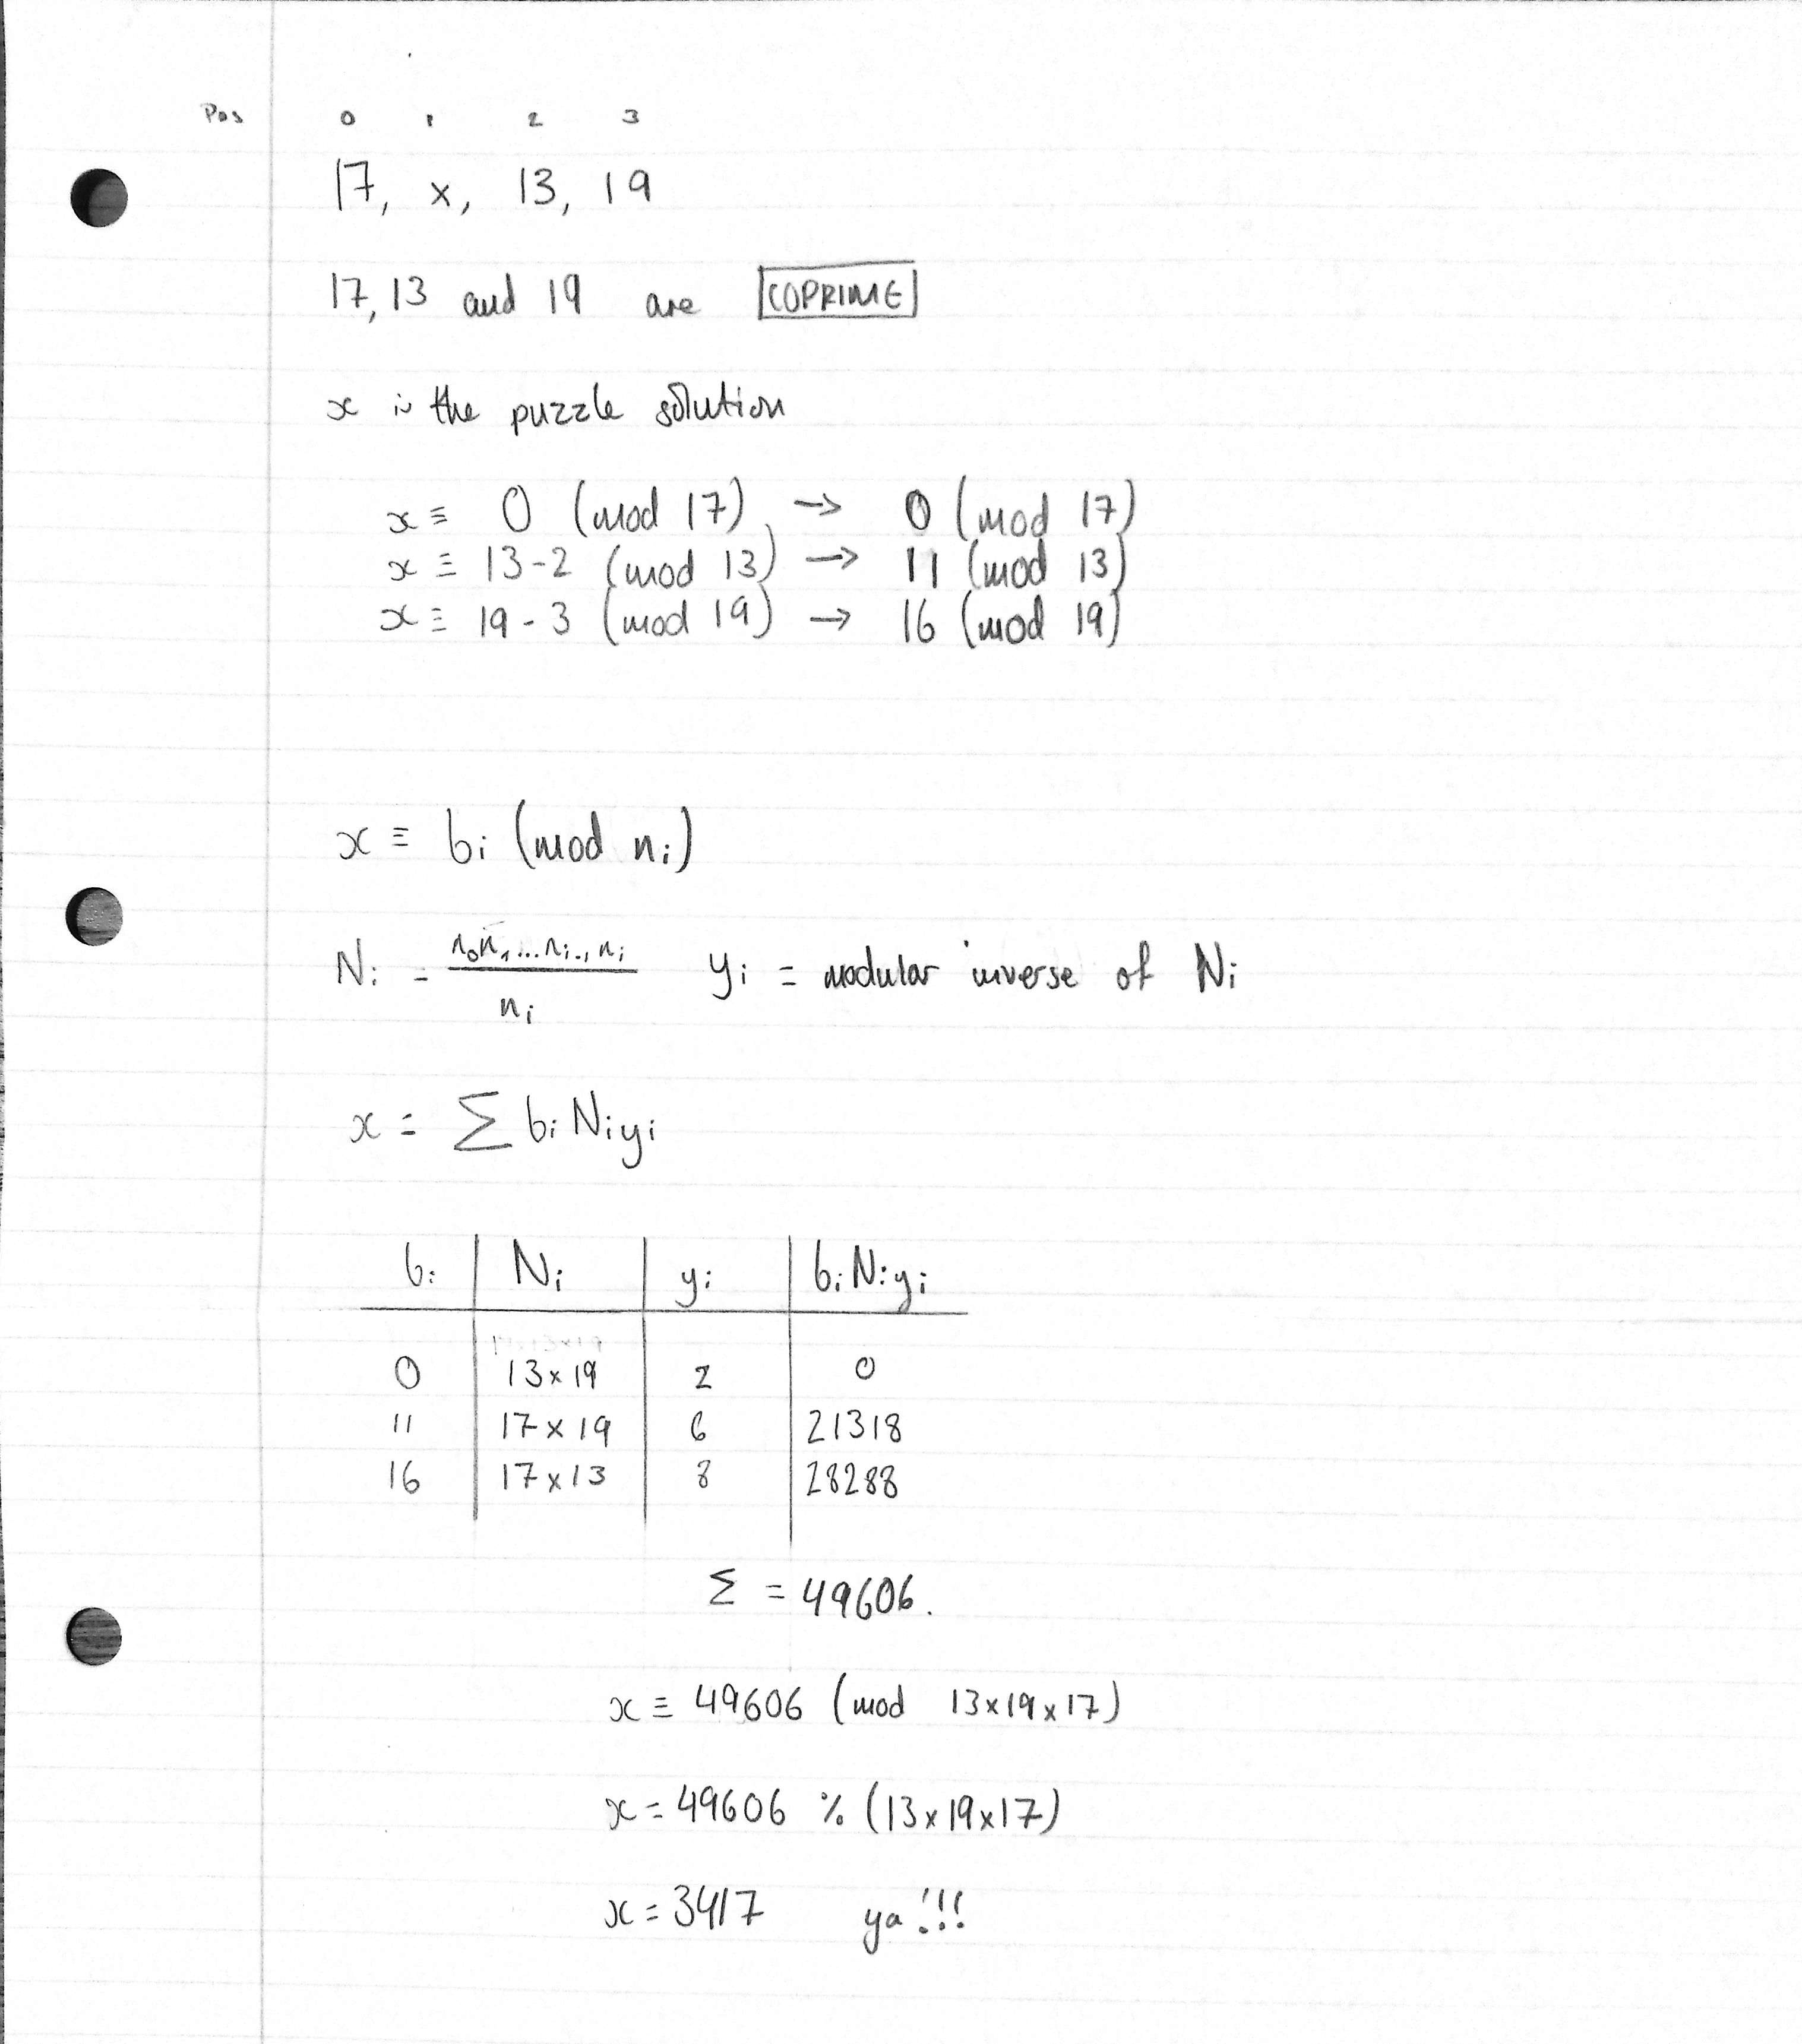 Pos 0 1 2 3
17, x, 13, 19
17, 13 and 19 are COPRIME
x is the puzzle solution
x ≡ 0 (mod 17) → 0 (mod 17)
x ≡ 13-2 (mod 13) → 11 (mod 13)
x ≡ 19-3 (mod 19) → 16 (mod 19)
x ≡ bi (mod ni)
Ni = n0n1...ni-1ni / ni yi = modular inverse of Ni
x = Σ biNiyi
bi Ni yi biNiyi
0 13×19 2 0
11 17×19 6 21318
16 17×13 8 28288
Σ = 49606.
x ≡ 49606 (mod 13×19×17)
x = 49606 % (13×19×17)
x = 3417 ya!!!